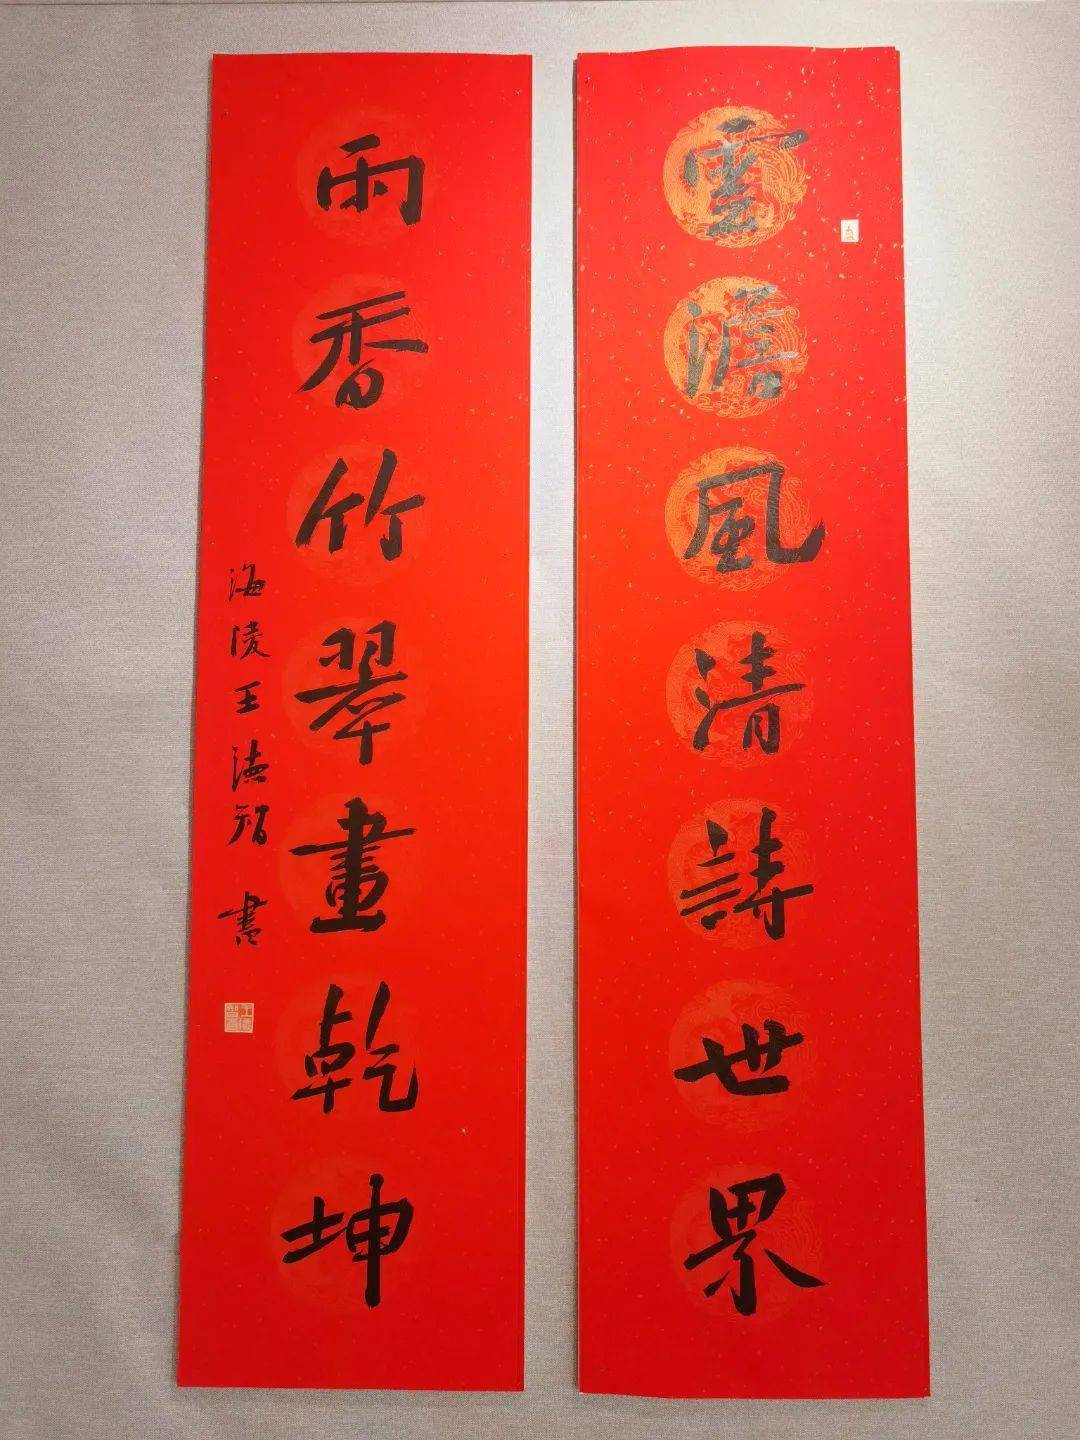 雲澹風清詩世界
雨香竹翠畫乾坤
海陵王德智書